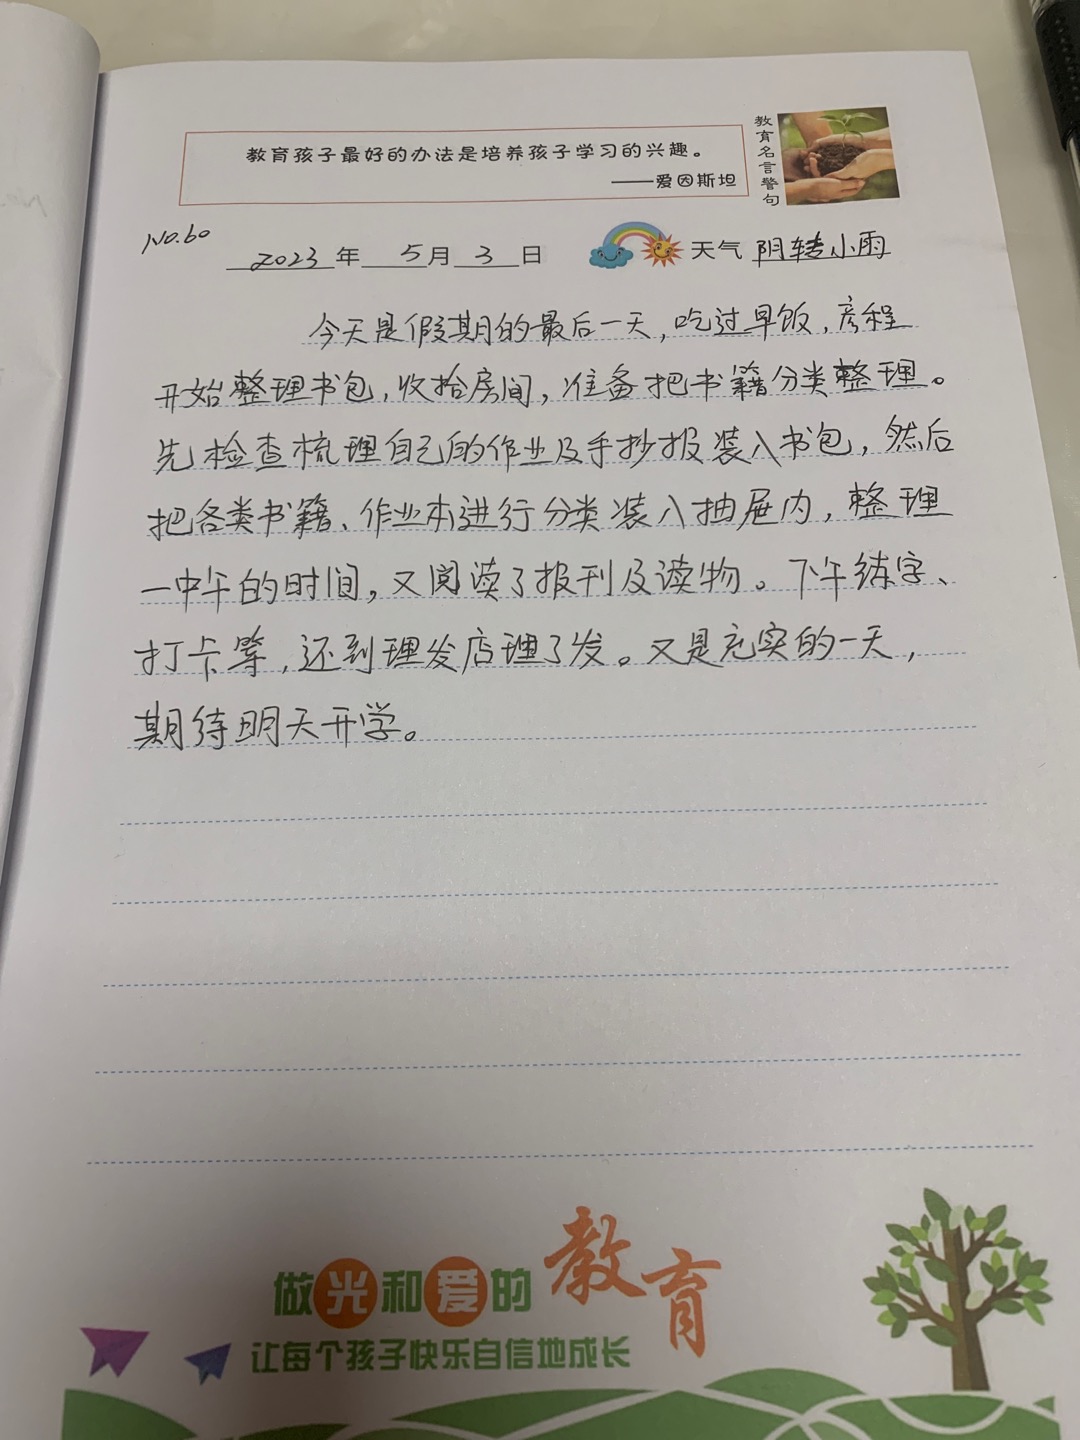 教育孩子最好的办法是培养孩子学习的兴趣。
——爱因斯坦
教育名言警句
NO.60
2023年 5月 3日 天气 阴转小雨
今天是假期的最后一天,吃过早饭,彦程
开始整理书包,收拾房间,准备把书籍分类整理。
先检查梳理自己的作业及手抄报装入书包,然后
把各类书籍、作业本进行分类装入抽屉内,整理
一中午的时间,又阅读了报刊及读物。下午练字、
打卡等,还到理发店理了发。又是充实的一天,
期待明天开学。
做光和爱的教育
让每个孩子快乐自信地成长